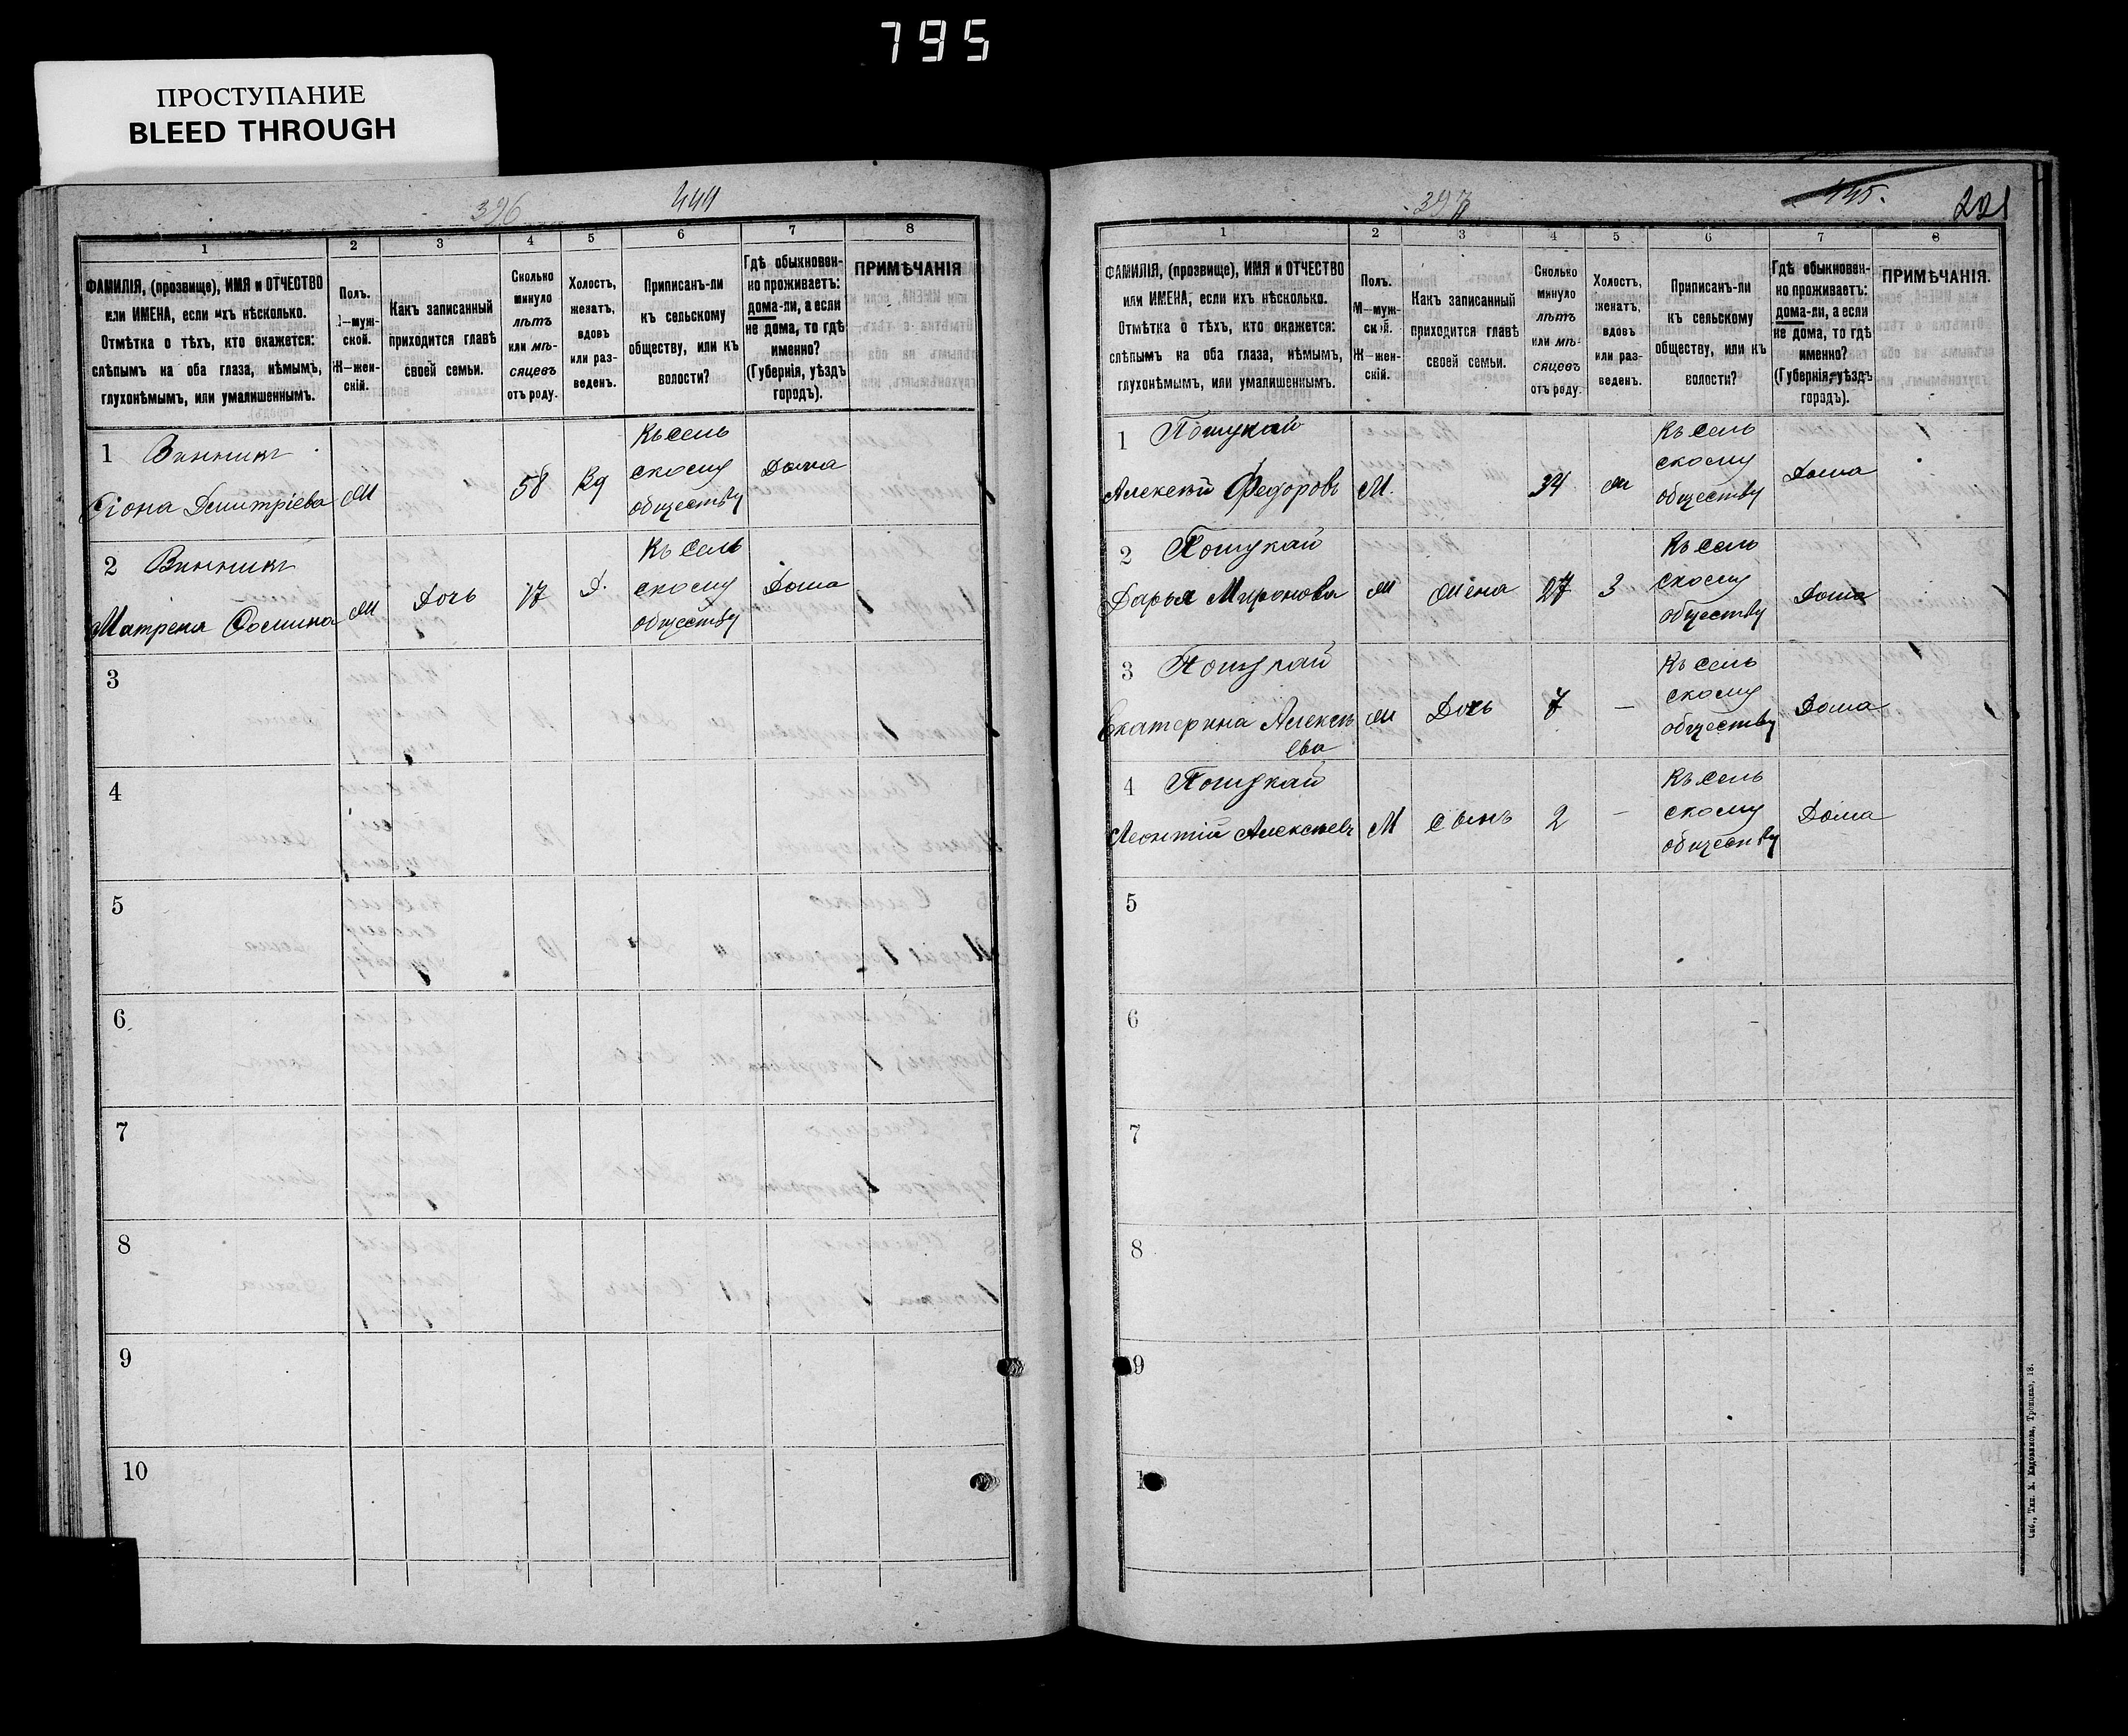 795
ПРОСТУПАНИЕ
BLEED THROUGH
396
444
1 2 3 4 5 6 7 8
ФАМИЛІЯ, (прозвище), ИМЯ и ОТЧЕСТВО
или ИМЕНА, если ихъ нѣсколько.
Отмѣтка о тѣхъ, кто окажется:
слѣпымъ на оба глаза, нѣмымъ,
глухонѣмымъ, или умалишеннымъ.
Полъ.
М—муж-
ской.
Ж—жен-
скій.
Какъ записанный
приходится главѣ
своей семьи.
Сколько
минуло
лѣтъ
или мѣ-
сяцевъ
отъ роду.
Холостъ,
женатъ,
вдовъ
или раз-
веденъ.
Приписанъ-ли
къ сельскому
обществу, или къ
волости?
Гдѣ обыкновен-
но проживаетъ:
дома-ли, а если
не дома, то гдѣ
именно?
(Губернія, уѣздъ
городъ).
ПРИМѢЧАНІЯ
1 Винникъ
Дмитріева М 58
Къ сель
скому
обществу
Дома
2 Винникъ
Матрена М Дочь 17 Д.
Къ сель
скому
обществу
Дома
3
4
5
6
7
8
9
10
397
445.
221
1 2 3 4 5 6 7 8
ФАМИЛІЯ, (прозвище), ИМЯ и ОТЧЕСТВО
или ИМЕНА, если ихъ нѣсколько.
Отмѣтка о тѣхъ, кто окажется:
слѣпымъ на оба глаза, нѣмымъ,
глухонѣмымъ, или умалишеннымъ.
Полъ.
М—муж-
ской.
Ж—жен-
скій.
Какъ записанный
приходится главѣ
своей семьи.
Сколько
минуло
лѣтъ
или мѣ-
сяцевъ
отъ роду.
Холостъ,
женатъ,
вдовъ
или раз-
веденъ.
Приписанъ-ли
къ сельскому
обществу, или къ
волости?
Гдѣ обыкновен-
но проживаетъ:
дома-ли, а если
не дома, то гдѣ
именно?
(Губернія, уѣздъ
городъ).
ПРИМѢЧАНІЯ.
1 Пошукай
Алексѣй Федоровъ М. 34
Къ сель
скому
обществу
Дома
2 Пошукай
Дарья Миронова 27 З
Къ сель
скому
обществу
Дома
3 Пошукай
Екатерина Алексѣ
ева
Дочь 7 —
Къ сель
скому
обществу
Дома
4 Пошукай
Леонтій Алексѣевъ М сынъ 2 —
Къ сель
скому
обществу
Дома
5
6
7
8
9
1